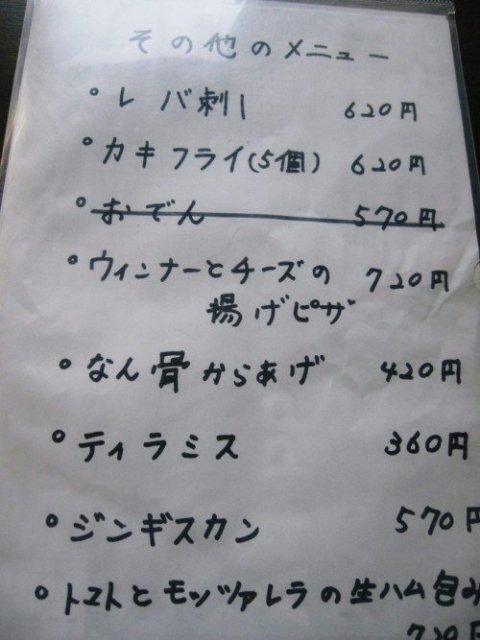 その他のメニュー
° レバ刺し 620円
° カキフライ(5個) 620円
° おでん 570円
° ウィンナーとチーズの 720円
揚げピザ
° なん骨からあげ 420円
° ティラミス 360円
° ジンギスカン 570円
° トマトとモッツァレラの生ハム包み
720円